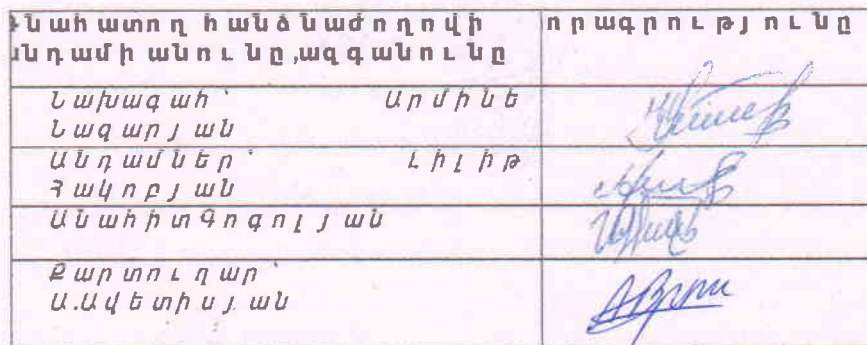 նահատող հանձնաժողովի
նդամի անունը,ազգանունը
որագրությունը
Նախագահ՝ Արմինե
Նազարյան
Անդամներ՝ Լիլիթ
Հակոբյան
ԱնահիտԳոգոլյան
Քարտուղար՝
Ա.Ավետիսյան